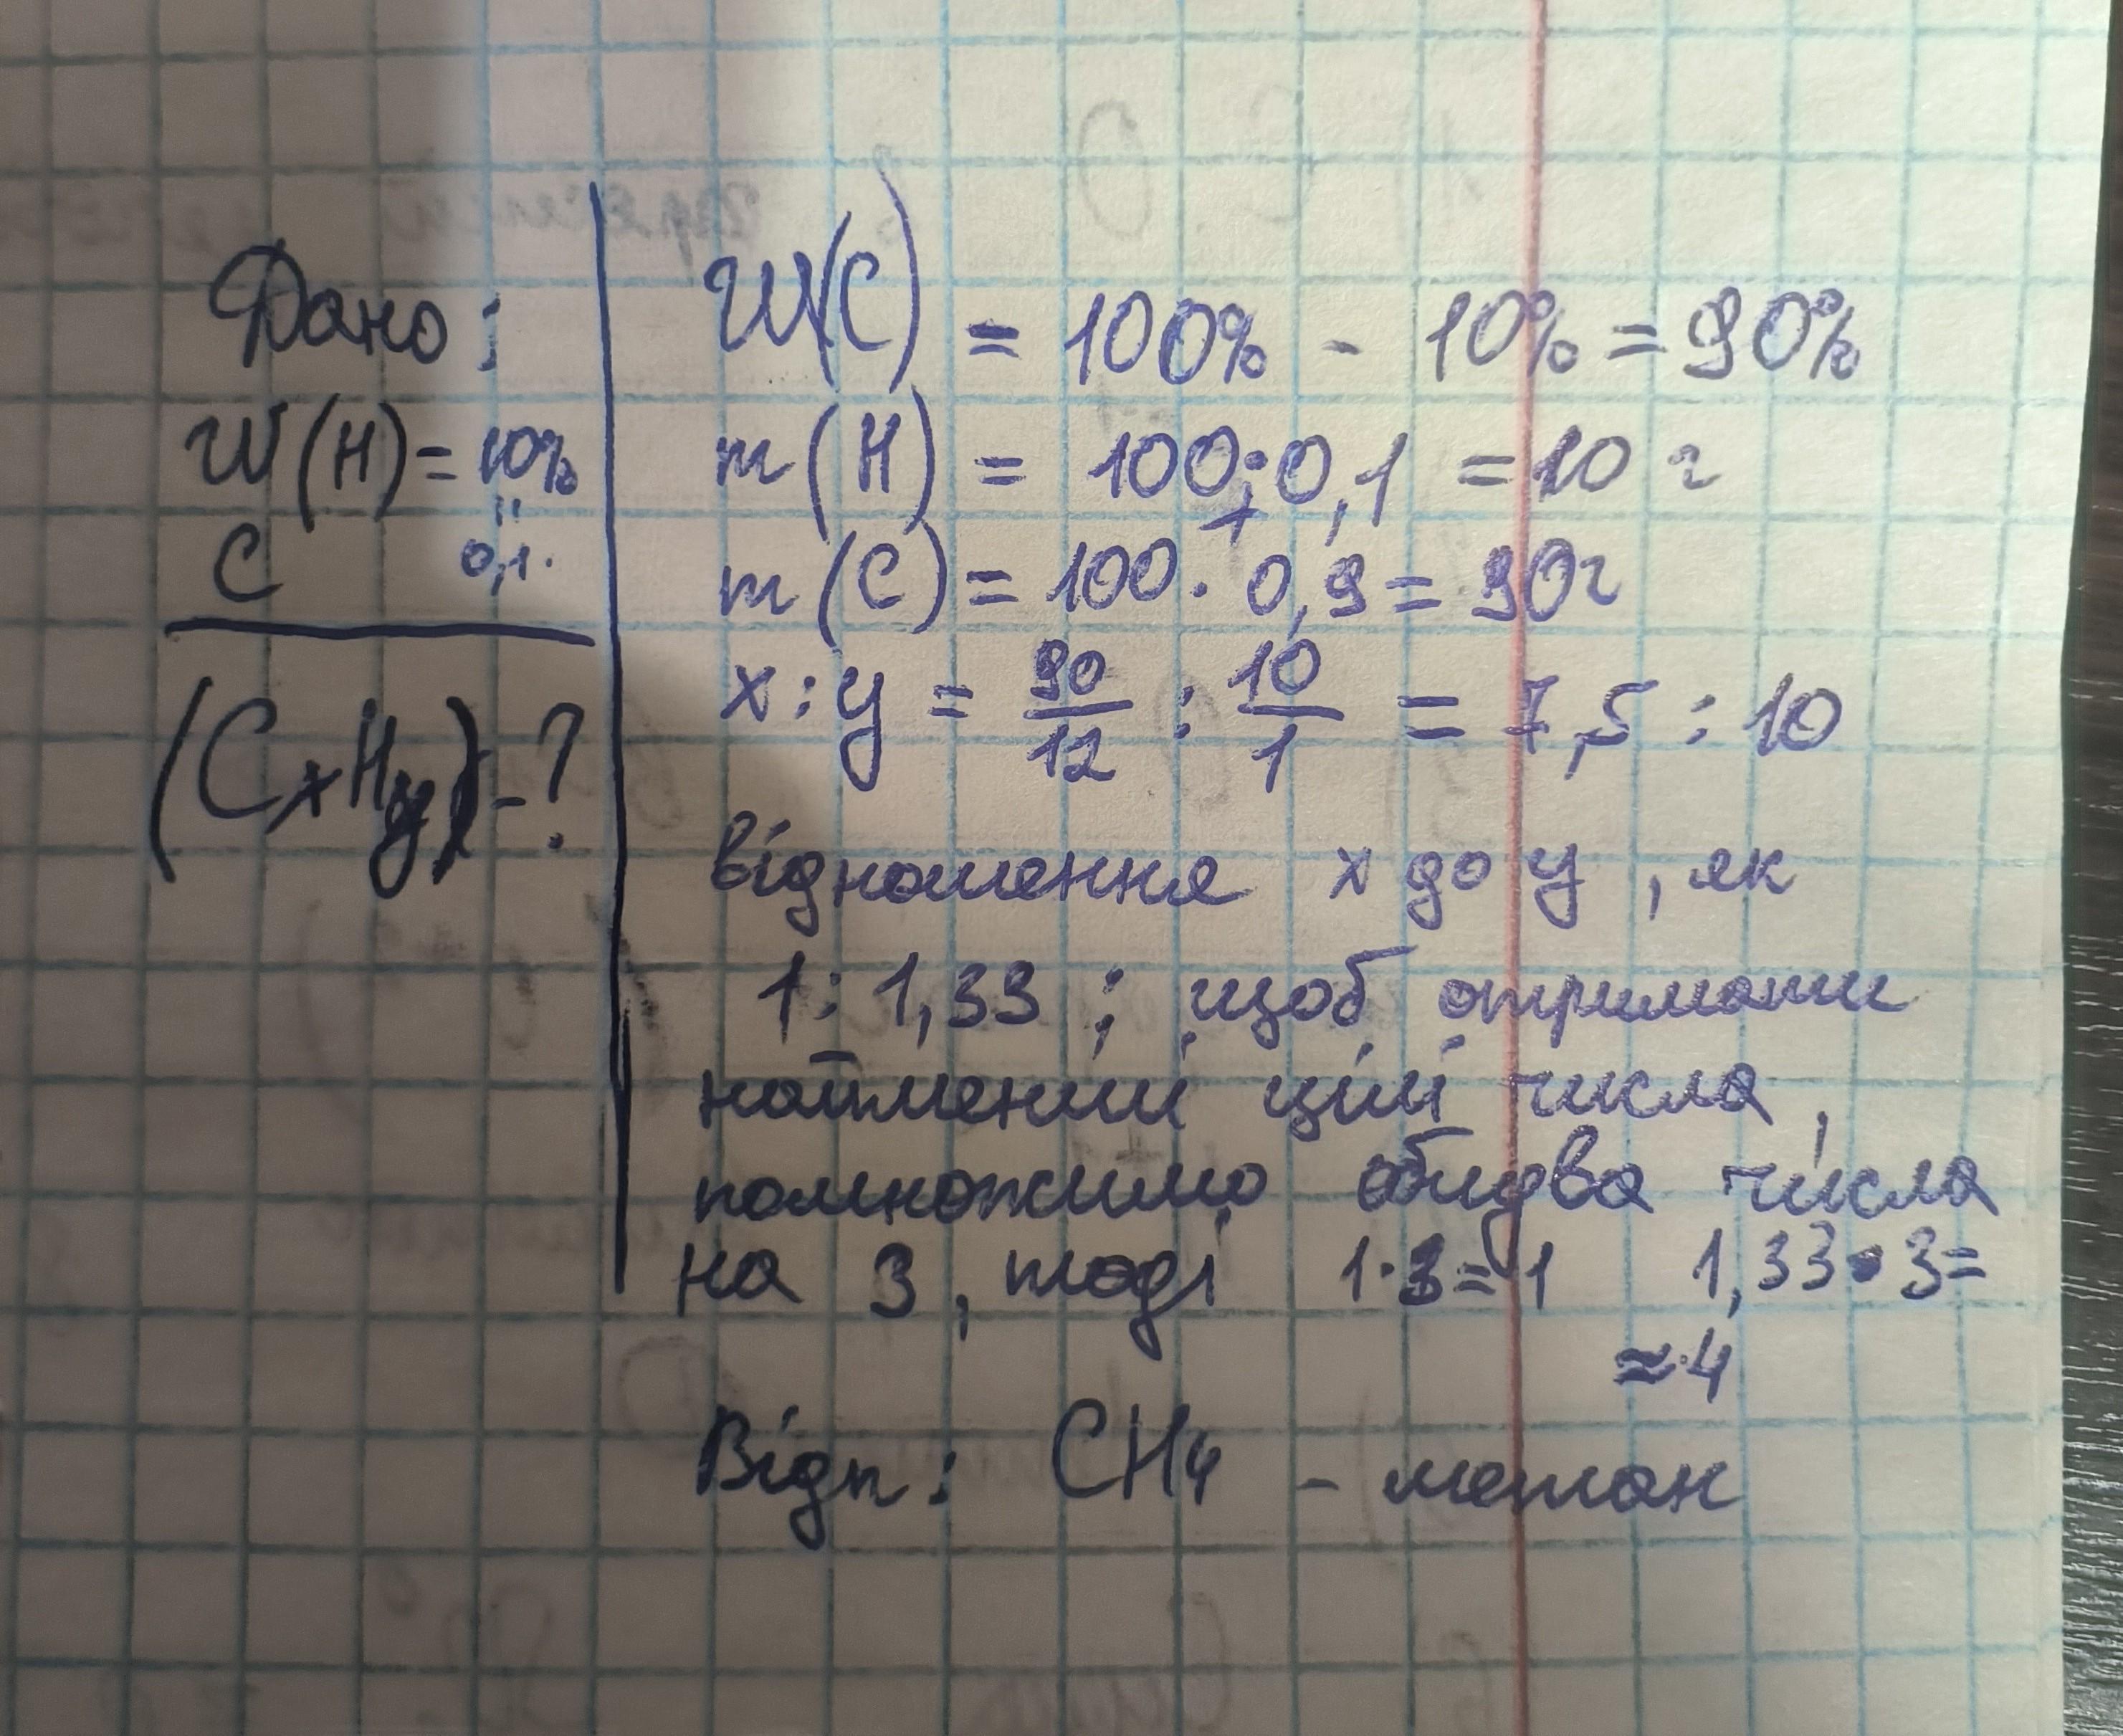 Дано:
W(H) = 10%
"
C 0,1.
(CxHy) - ?
W(C) = 100% - 10% = 90%
m(H) = 100 : 0,1 = 10 г
m(C) = 100 · 0,9 = 90г
x : y = 90/12 : 10/1 = 7,5 : 10
відношення x до y, як
1 : 1,33 ; щоб отримати
найменші цілі числа,
помножимо обидва числа
на 3, тоді 1·3=1 1,33·3=
≈4
Відп: CH4 - метан